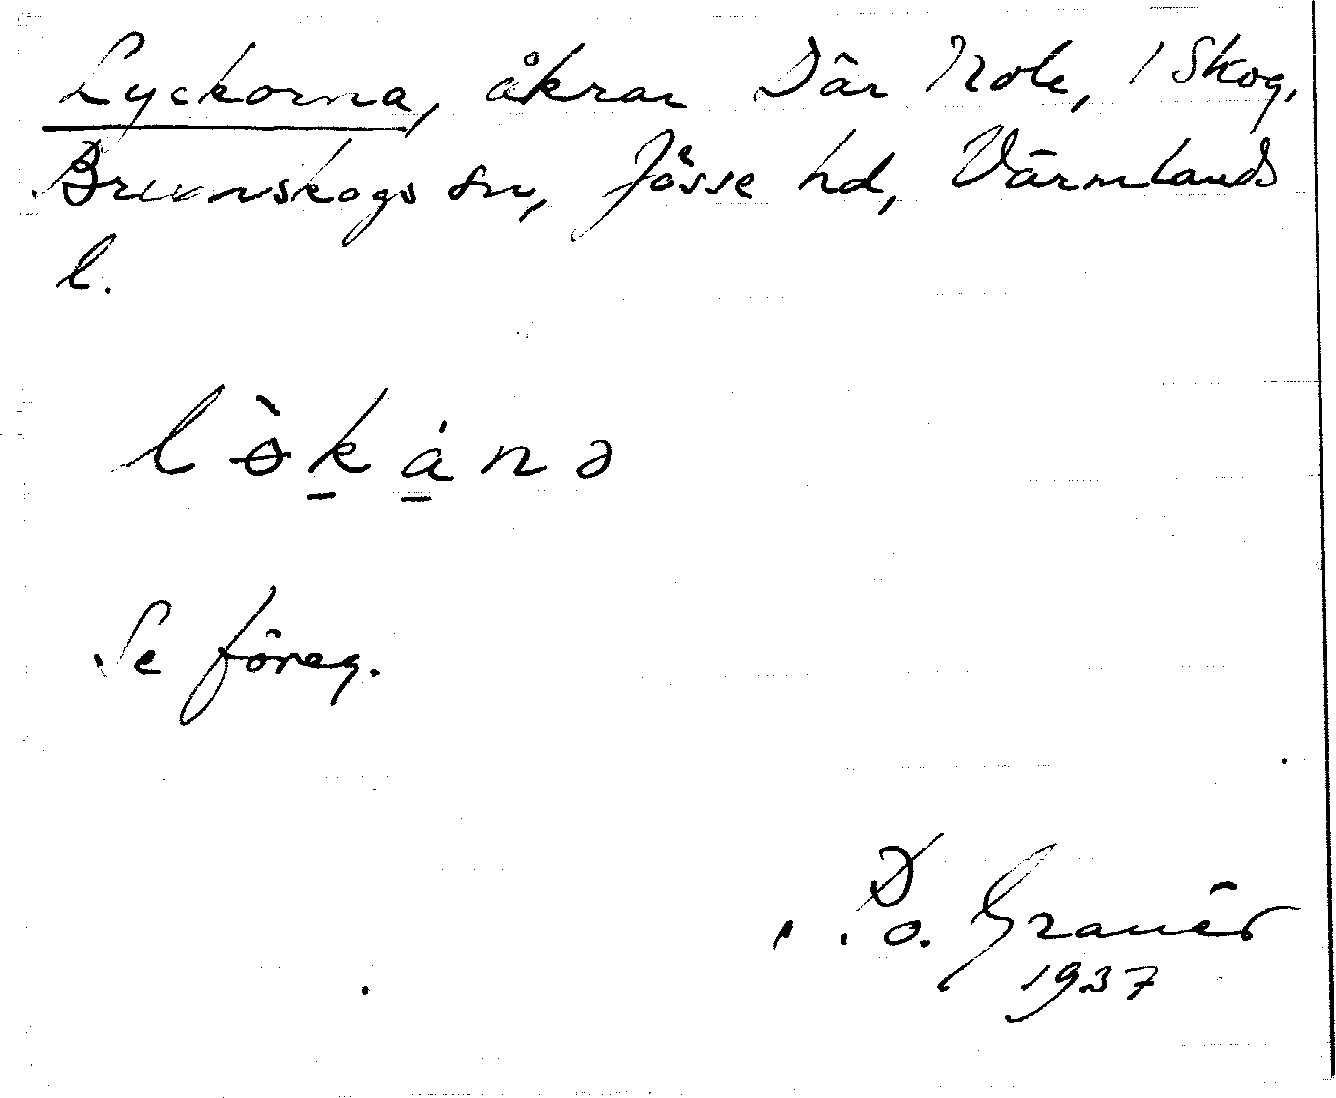 Lyckorna, åkrar Där Nole, i Skog,
Brunskogs sn, Jösse hd, Värmlands
l.
lɵ̀k̠á̠nə
Se föreg.
D.o. Granér
1937